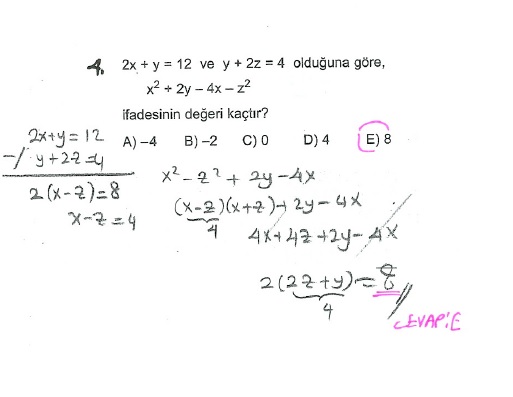 4. 2x + y = 12 ve y + 2z = 4 olduğuna göre,
x² + 2y – 4x – z²
ifadesinin değeri kaçtır?
A) –4 B) –2 C) 0 D) 4 E) 8
2x+y=12
-/ y+2z=4
2(x-z)=8
x-z=4
x²-z²+2y-4x
(x-z)(x+z)+2y-4x
4
4x+4z+2y-4x
2(2z+y)=8
4
CEVAP:E